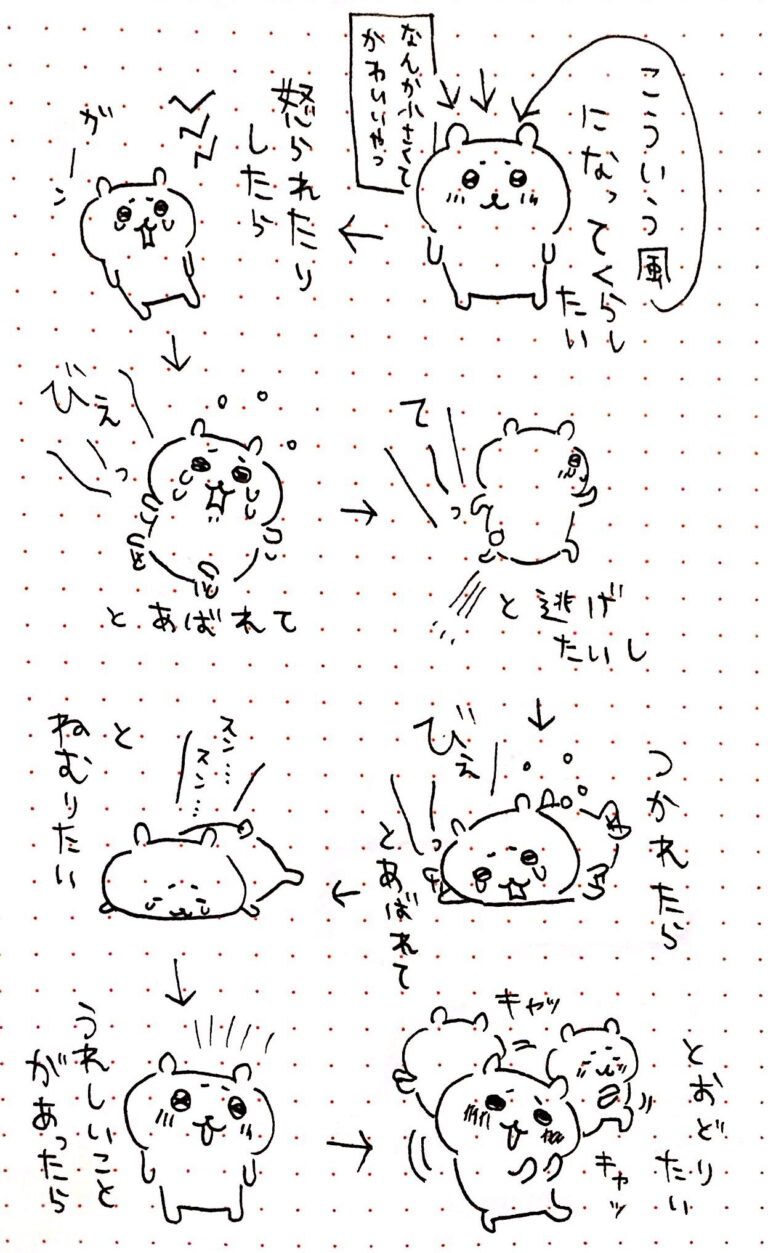 こういう風
になってくらし
たい
なんか小さくて
かわいいやつ
怒られたり
したら
がーン
びえ
っ
とあばれて
て
てっ
と逃げ
たいし
つかれたら
びえ
っ
とあばれて
スン…
スン…
と
ねむりたい
うれしいこと
があったら
キャッ
キャッ
とおどり
たい